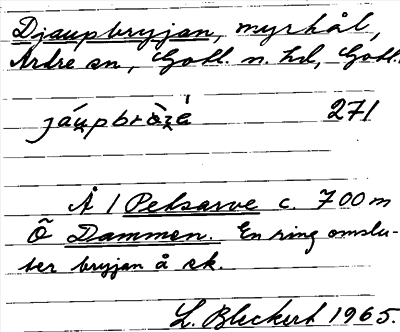 Djaupbryjan, myrhål,
Ardre sn, Gotl. n. hd, Gotl.
jáupbrὸzè 271
Å / Petsarve c. 700 m
Ö Dammen. En ring omslu-
ter bryjan å sk.
L. Bleckert 1965.